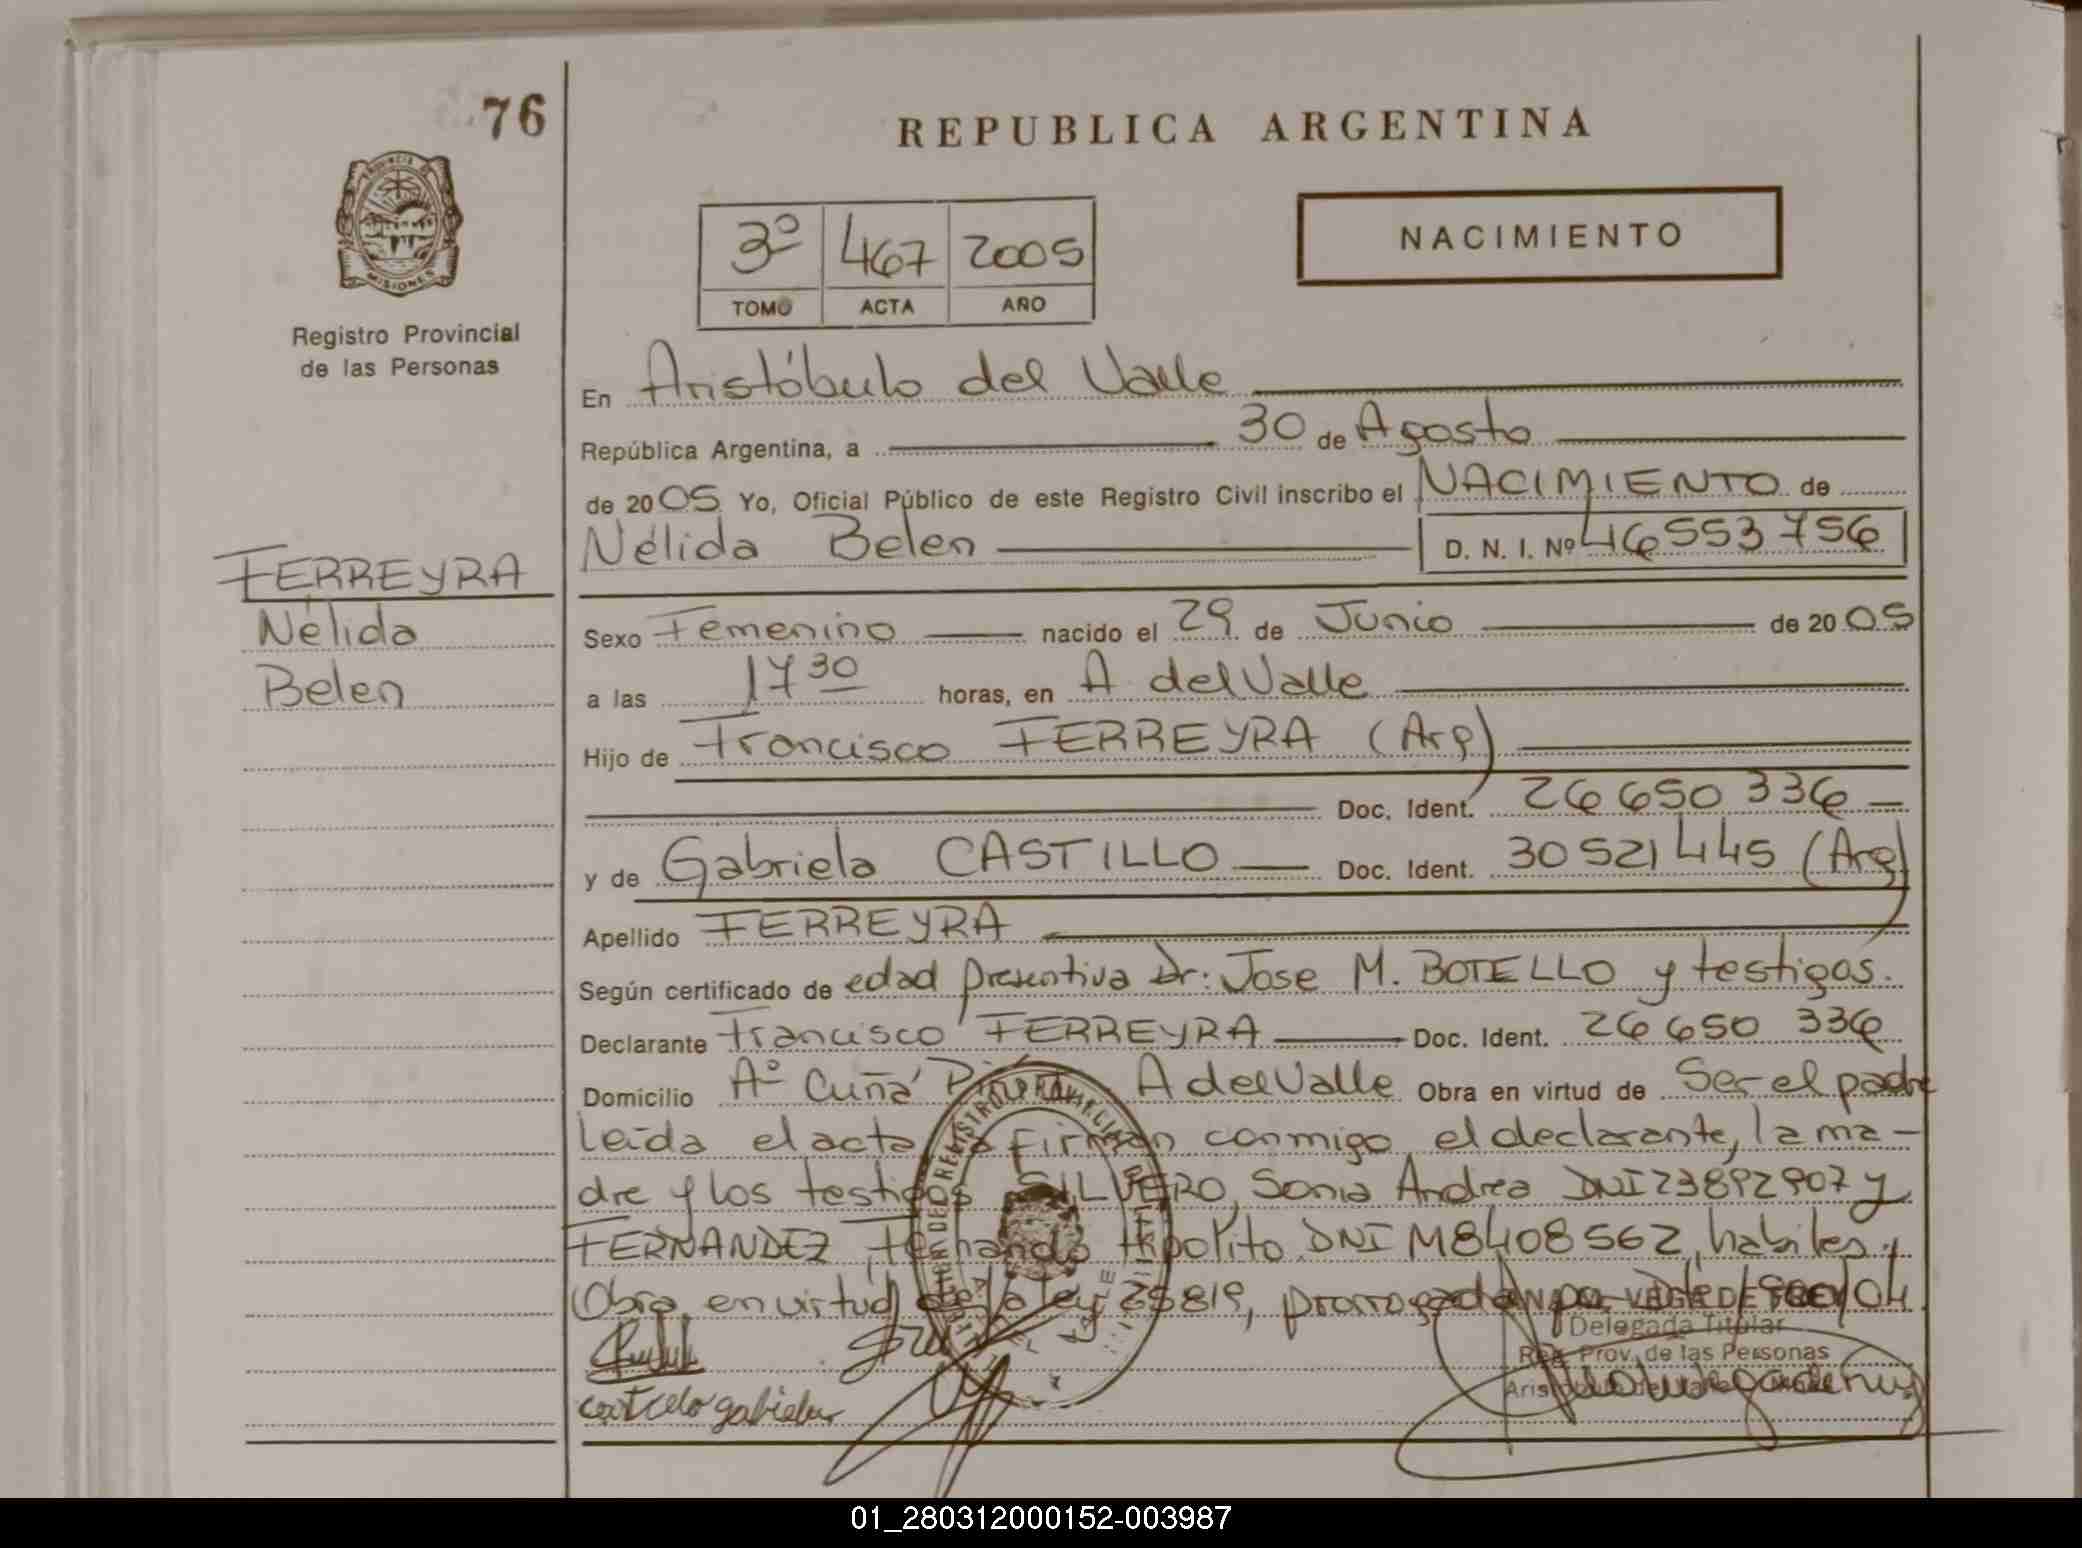 76
REPUBLICA ARGENTINA
PROVINCIA
MISIONES
Registro Provincial
de las Personas
3º 467 2005
TOMO ACTA AÑO
NACIMIENTO
En Aristóbulo del Valle
República Argentina, a 30 de Agosto
de 2005 Yo, Oficial Público de este Registro Civil inscribo el NACIMIENTO de
Nélida Belen D. N. I. Nº 46553756
FERREYRA
Nélida
Belen
Sexo Femenino nacido el 29 de Junio de 2005
a las 17 30 horas, en A del Valle
Hijo de Francisco FERREYRA (Arg)
Doc. Ident. 26 650 336
y de Gabriela CASTILLO Doc. Ident. 30 521 445 (Arg)
Apellido FERREYRA
Según certificado de edad presentiva Dr: Jose M. BOTELLO y testigos.
Declarante Francisco FERREYRA Doc. Ident. 26 650 336
Domicilio Aº Cuña Pirú A del Valle Obra en virtud de Ser el padre
Leída el acta la firman conmigo el declarante, la ma-
dre y los testigos SILVERO, Sonia Andrea DNI 23892907 y
FERNANDEZ, Fernando Hipolito DNI M8408562, habiles,
Obra en virtud de la ley 25819, prorrogada por /04
Delegada Titular
Reg. Prov. de las Personas
Aristóbulo del Valle
castelo gabiela
01_280312000152-003987